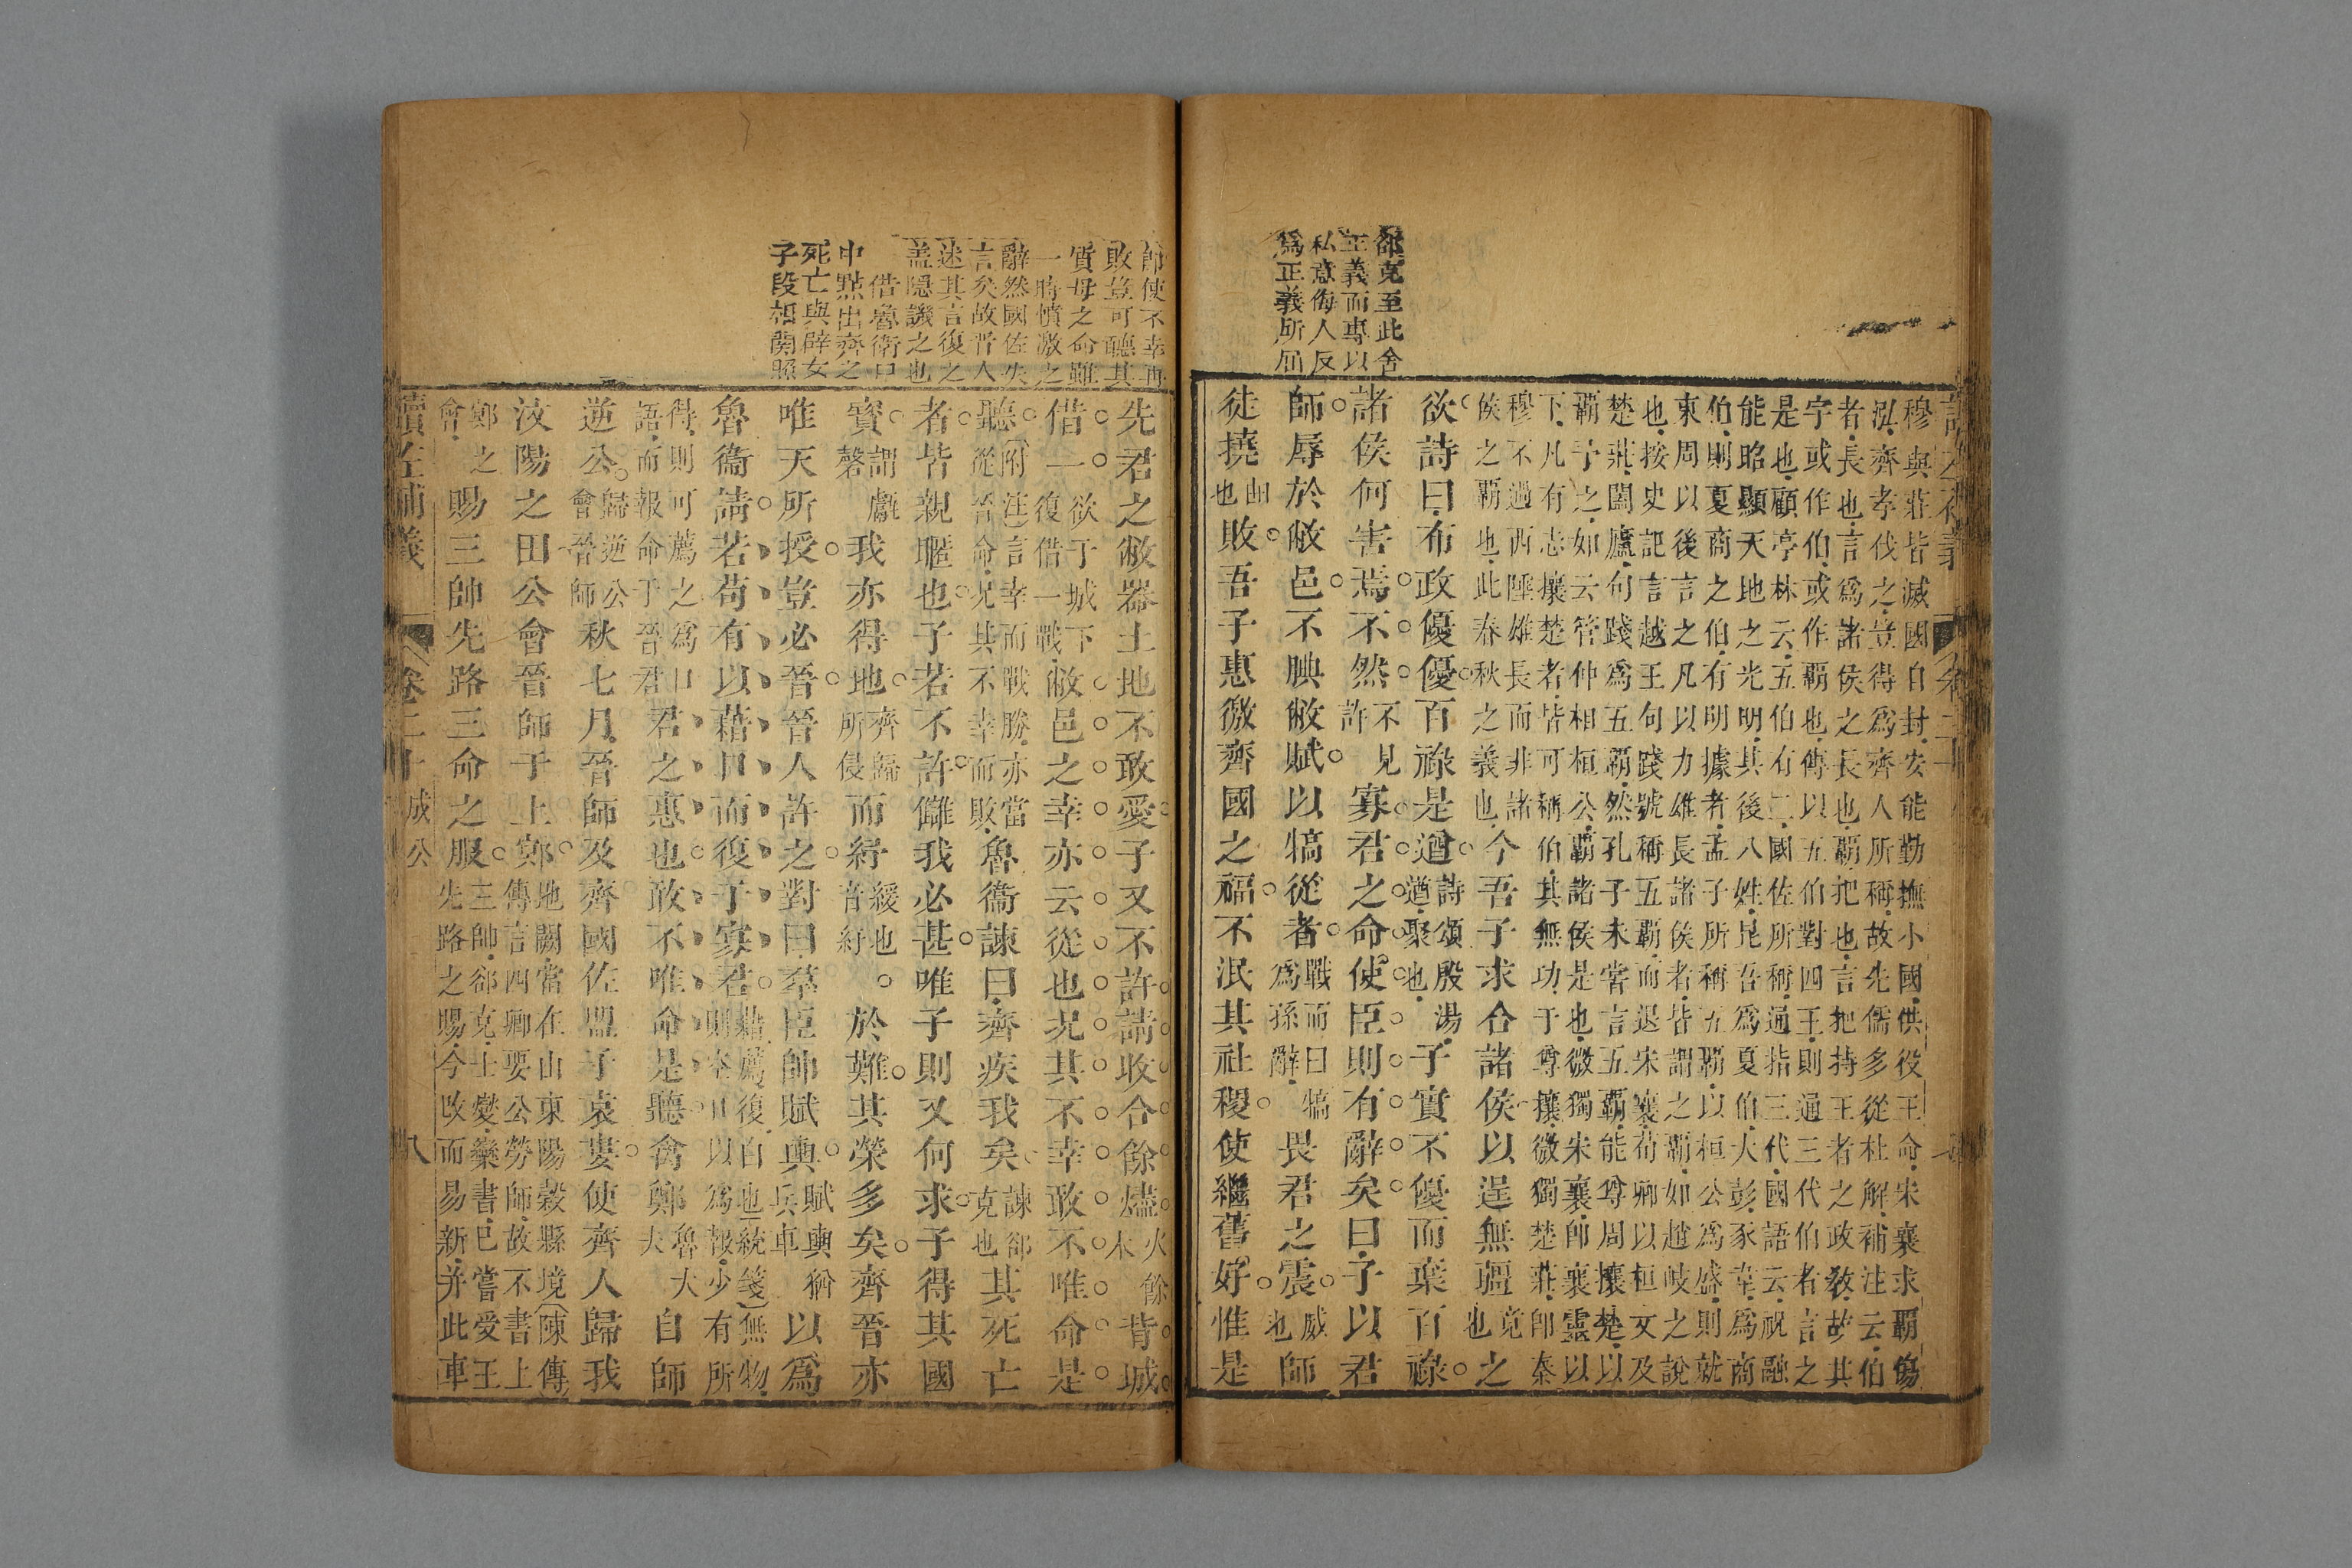 郤克至此舍
正義而專以
私意侮人反
爲正義所屈
穆與莊皆滅國自封安能勤撫小國供役王命宋襄求霸傷
泓齊孝伐之豈得爲齊人所稱故先儒多從杜解補注云伯
者長也言爲諸侯之長也霸把也言把持王者之政敎故其
字或作伯或作霸也傳以五伯對四王則通三代伯者言之
是也顧亭林云五伯有二國佐所稱通指三代國語云祝融
能昭顯天地之光明其後八姓昆吾爲夏伯大彭豕韋爲商
伯則夏商之伯有明據者孟子所稱五霸以桓公爲盛則就
東周以後言之凡以力雄長諸侯者皆謂之霸如趙岐之說
也按史記言越王句踐號稱五霸而退宋襄荀卿以桓文及
楚莊闔廬句踐爲五霸然孔子未嘗言五霸能尊周攘楚以
霸予之如云管仲相桓公霸諸侯是也微獨宋襄卽襄靈以
下凡有志攘楚者皆可稱伯其無功于尊攘微獨楚莊卽秦
穆不過西陲雄長而非諸
侯之霸也此春秋之義也今吾子求合諸侯以逞無疆也竟之
欲詩曰布政優優百祿是遒詩頌殷湯遒聚也子實不優而棄百祿
諸侯何害焉不然不見許寡君之命使臣則有辭矣曰子以君
師辱於敝邑不腆敝賦以犒從者戰而曰犒爲孫辭畏君之震威也師
徒撓曲也敗吾子惠徼齊國之福不泯其社稷使繼舊好惟是
師使不幸再
敗豈可聽其
質母之命雖
一時憤激之
辭然國佐失
言矣故晉人
迷其言復之
蓋隱譏之也
借魯衛口
中點出齊之
死亡與辟女
子段相関照
先君之敝器土地不敢愛子又不許請收合餘燼火餘木背城
借一欲于城下復借一戰敝邑之幸亦云從也况其不幸敢不唯命是
聽(附注)言幸而戰勝亦當從晉命况其不幸而敗魯衞諫曰齊疾我矣諫郤克也其死亡
者皆親暱也子若不許讎我必甚唯子則又何求子得其國
寳謂甗磬我亦得地齊歸所侵而紓緩也音紓於難其榮多矣齊晉亦
唯天所授豈必晉晉人許之對曰羣臣帥賦輿賦輿猶兵車以爲
魯衞請若苟有以藉口而復于寡君藉薦復白也(統箋)無物則空口以爲報少有所
得則可薦之爲口語而報命于晉君君之惠也敢不唯命是聽禽鄭魯大夫自師
逆公歸逆公會晉師秋七月晉師及齊國佐盟于袁婁使齊人歸我
汶陽之田公會晉師于上鄍地闕當在山東陽穀縣境(陳傳)傳言四卿要公勞師故不書上
鄍之會賜三帥先路三命之服三帥郤克士燮欒書已嘗受王先路之賜今改而易新并此車
讀左補義
卷二十
成公
八